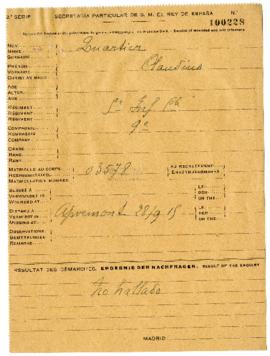 2ª SERIE SECRETARÍA PARTICULAR DE S. M. EL REY DE ESPAÑA Nº
100228
NOM
NAME
SURNAME
Quartier
PRÉNOM
VORNAME
CHRISTIAN NAME
Claudius
AGE
ALTER
AGE
RÉGIMENT
REGIMENT
REGIMENT
COMPAGNIE
KOMPAGNIE
COMPANY
9e
GRADE
RANG
RANK
MATRICULE AU CORPS
03578
AU RECRUTEMENT
BLESSÉ A
VERWUNDET IN
WOUNDED AT
LE
DEN
ON THE
DISPARU A
VERMISST IN
MISSING AT
Apremont 28/9 15
LE
DEN
ON THE
OBSERVATIONS
BEMERKUNGEN
REMARKS
RÉSULTAT DES DÉMARCHES. ERGEBNIS DER NACHFRAGEN. RESULT OF THE ENQUIRY
No hallado
MADRID